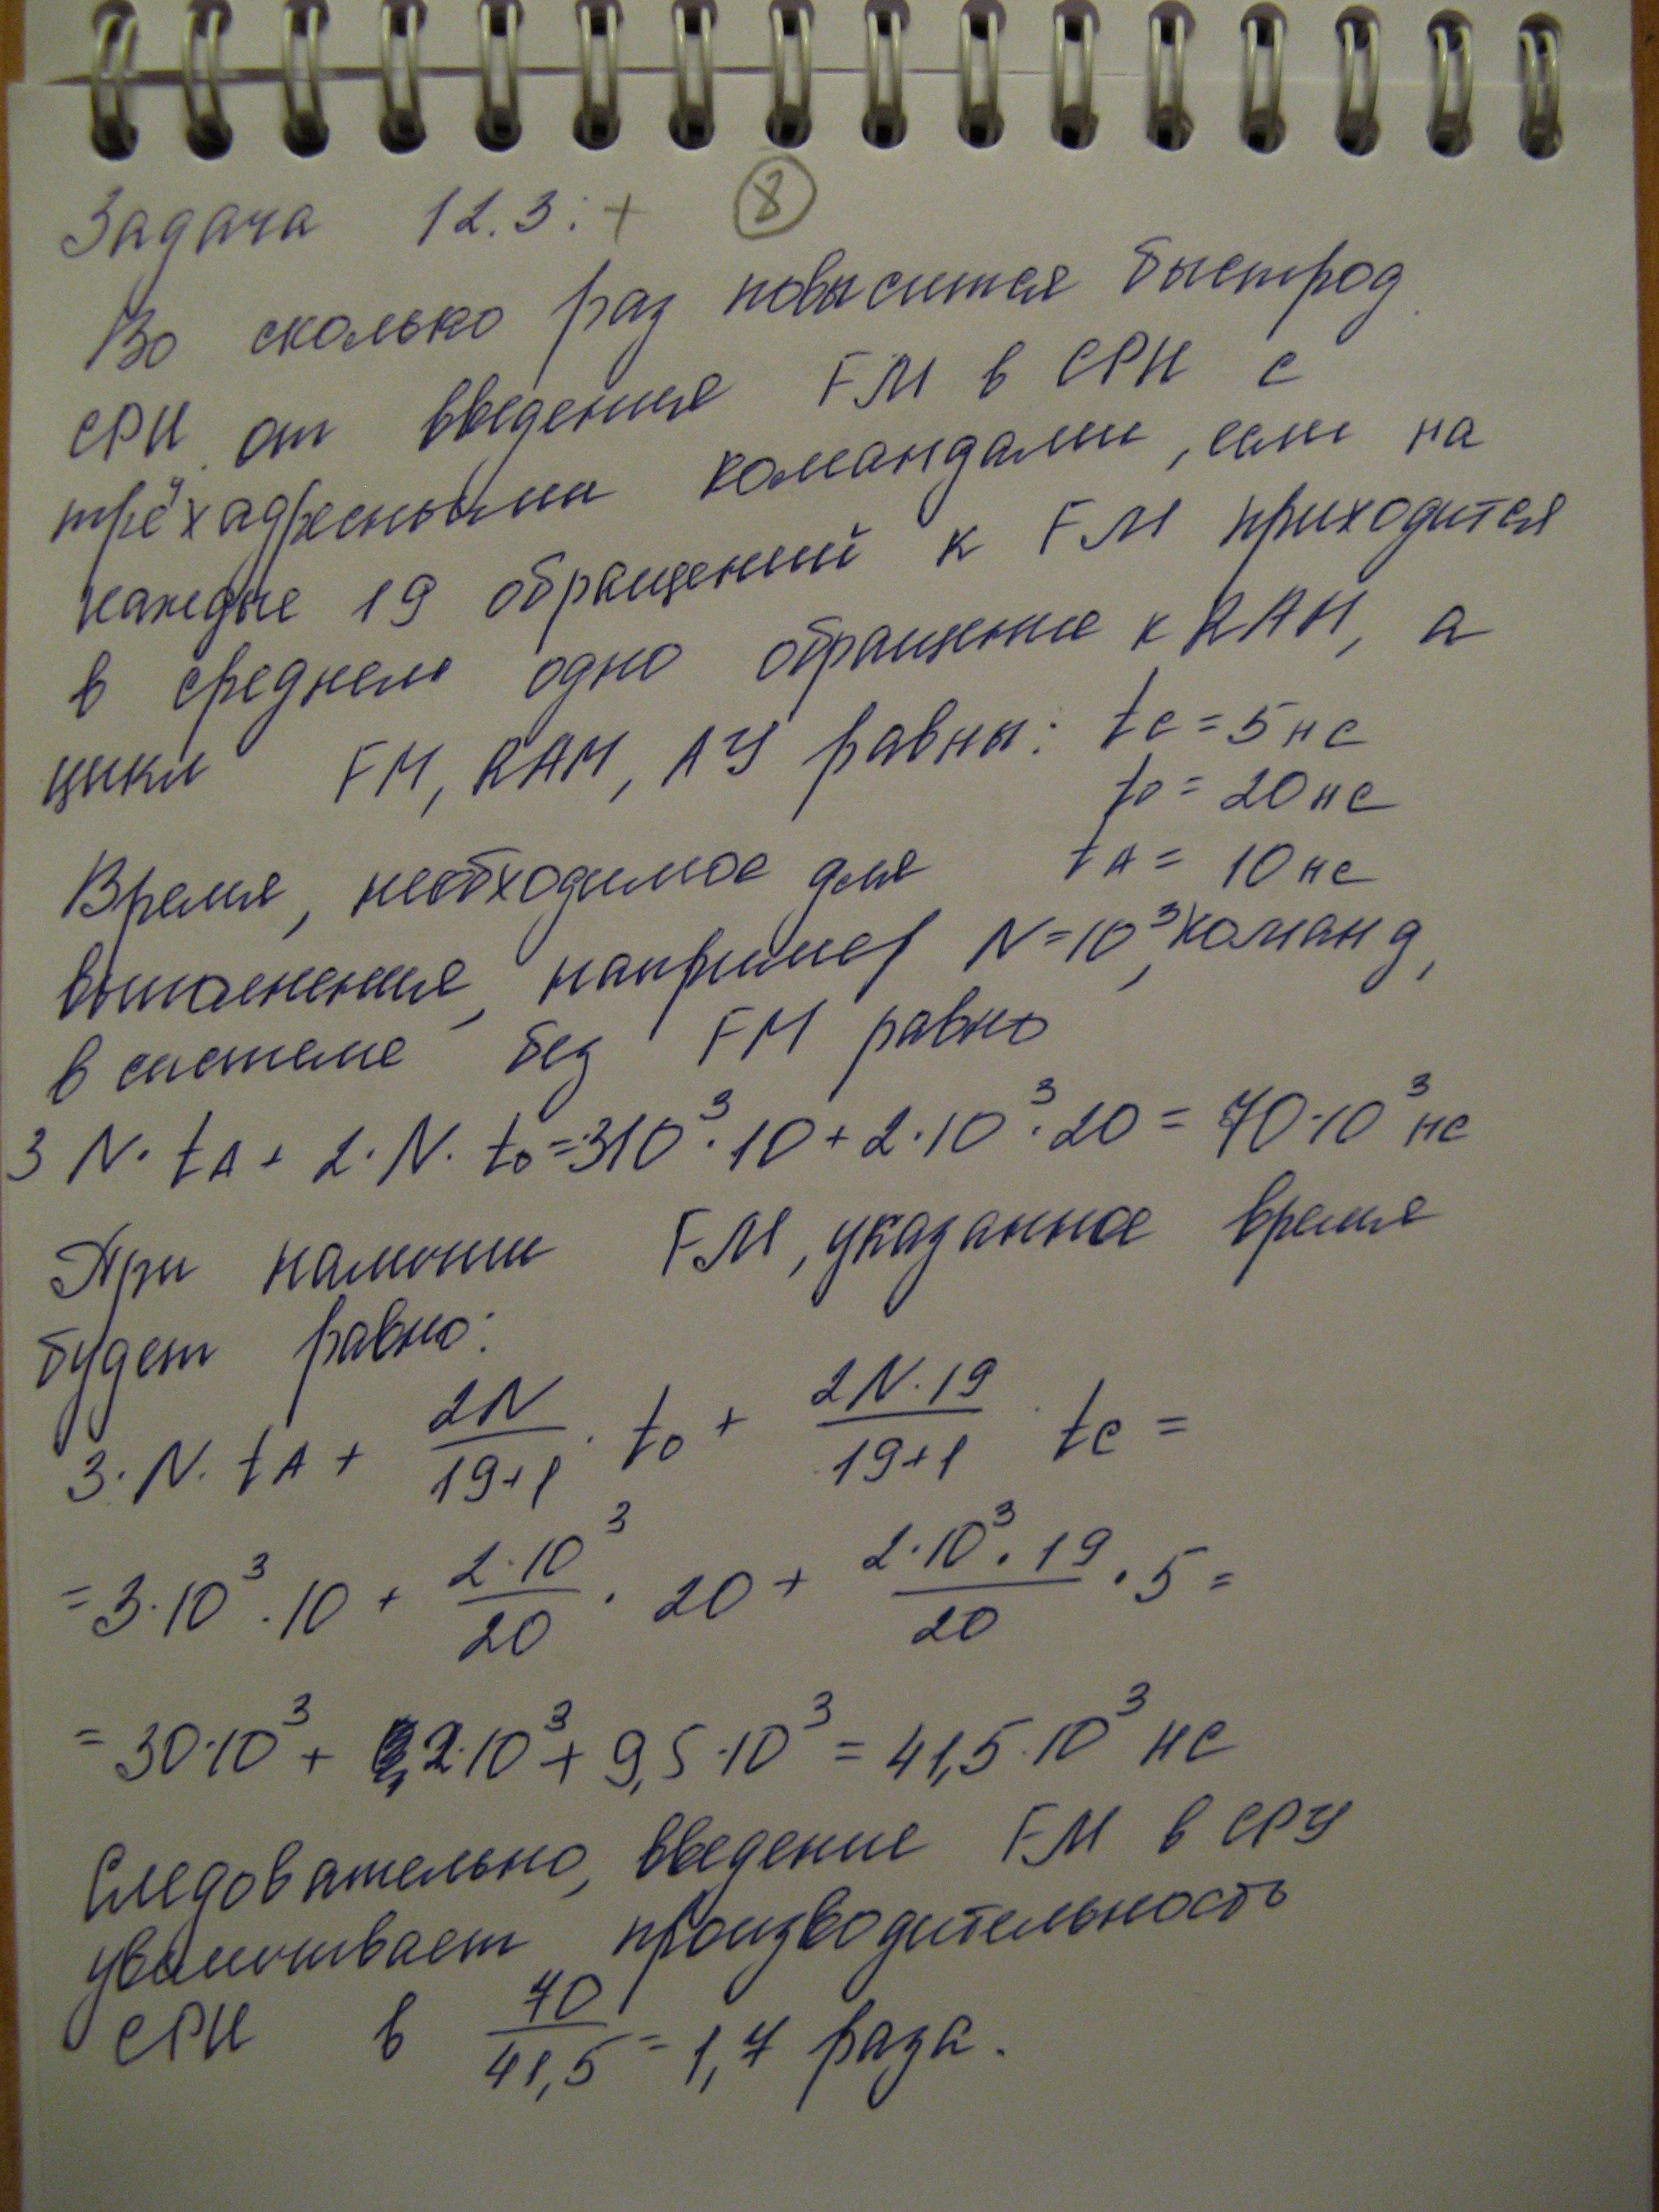 Задача 12.3: + 8
Во сколько раз повысится быстрод.
CPU от введения FM в CPU с
трёхадресными командами, если на
каждые 19 обращений к FM приходится
в среднем одно обращение к RAM, а
цикл FM, RAM, АУ равны: tc = 5 нс
to = 20 нс
Время, необходимое для tA = 10 нс
выполнения, например N = 10³, команд,
в системе без FM равно
3 N · tA + 2 · N · to = 3·10³ · 10 + 2 · 10³ · 20 = 70 · 10³ нс
При наличии FM, указанное время
будет равно:
3 · N · tA + 2N/(19+1) · to + 2N · 19/(19+1) · tc =
= 3 · 10³ · 10 + 2 · 10³/20 · 20 + 2 · 10³ · 19/20 · 5 =
= 30 · 10³ + 2 · 10³ + 9,5 · 10³ = 41,5 · 10³ нс
Следовательно, введение FM в CPU
увеличивает производительность
CPU в 70/41,5 = 1,7 раза.